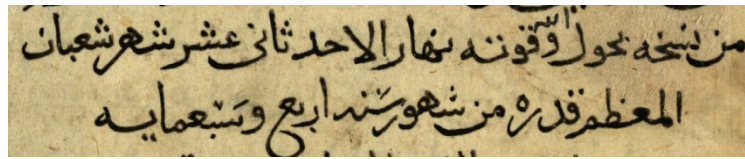 من نسخه بحول الله وقوته نهار الاحد ثانى عشر شهر شعبان
المعظم قدره من شهور سنه اربع وسبعمايه